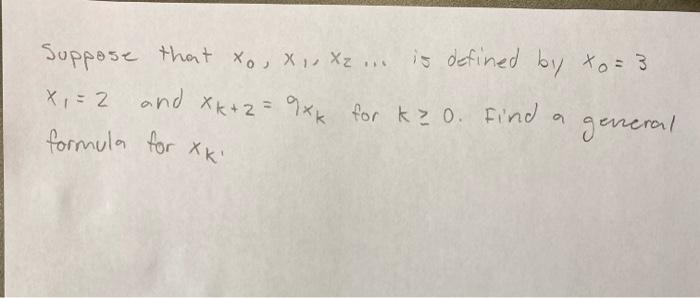 Suppose that x₀, x₁, x₂ ... is defined by x₀ = 3
x₁ = 2 and xₖ₊₂ = 9xₖ for k ≥ 0. Find a general
formula for xₖ.